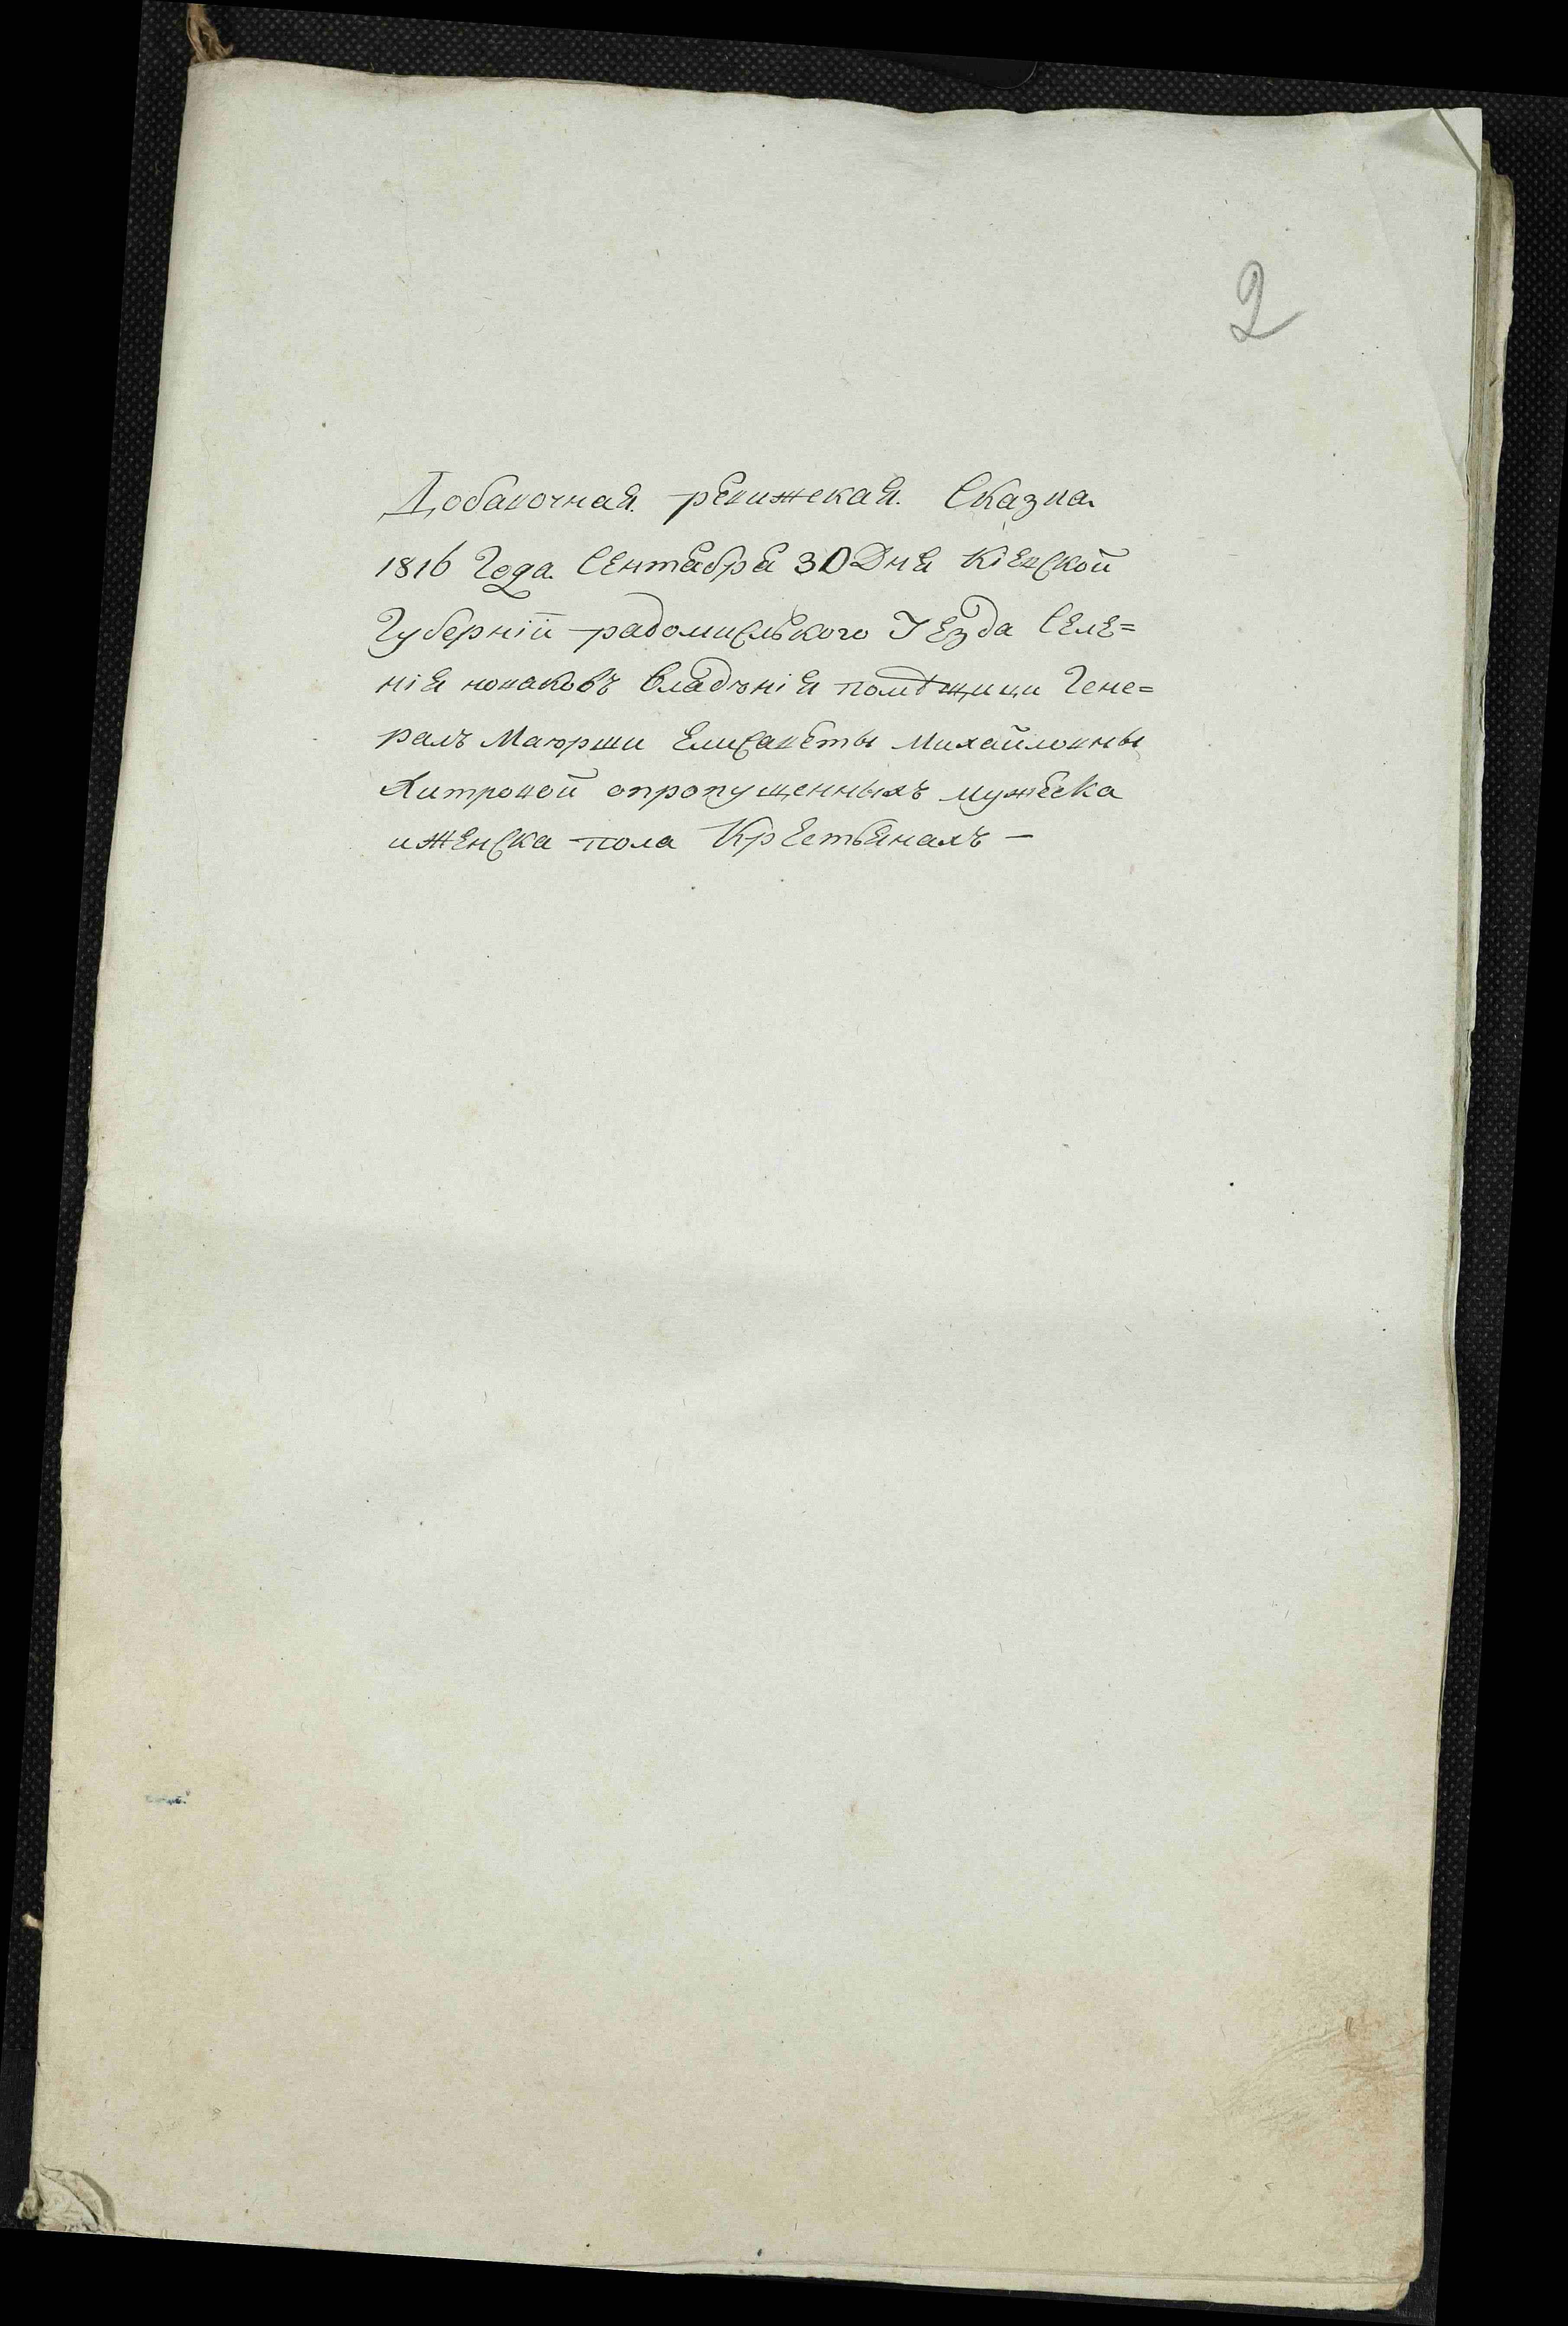 2
Добавочная ревижская Сказка
1816 Года Сентября 30 Дня Кіевской
Губерніи радомисльского Уезда Селе=
нія новаковъ владѣнія помѣщици Гене=
ралъ Маюрши Елисаветы Михайловны
Хитровой опропущенныхъ мужеска
иженска пола Крестьянахъ —